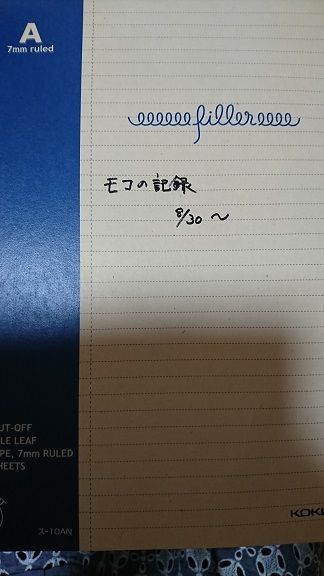 A
7mm ruled
filler
モコの記録
8/30 〜
UT-OFF
LE LEAF
PE, 7mm RULED
HEETS
ス-10AN
KOKU